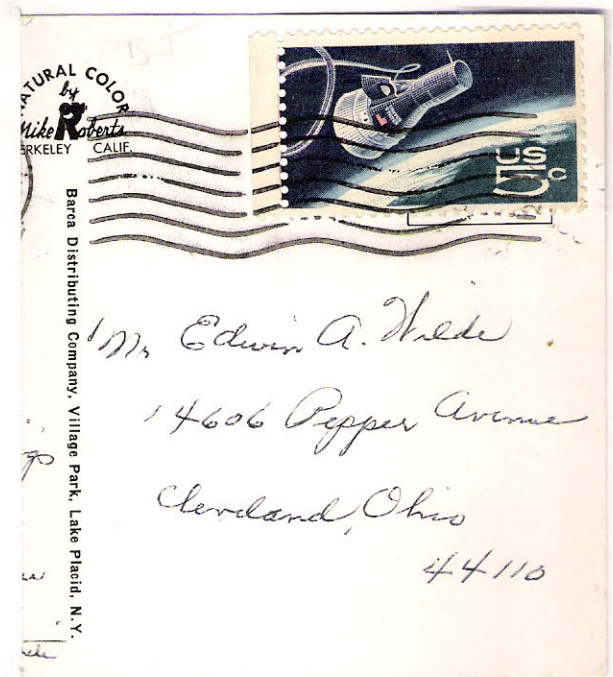 NATURAL COLOR
by
Mike Roberts
BERKELEY CALIF.
US
5c
Barca Distributing Company, Village Park, Lake Placid, N.Y.
Mr Edwin A. Wilde
14606 Pepper Avenue
Cleveland, Ohio
44110